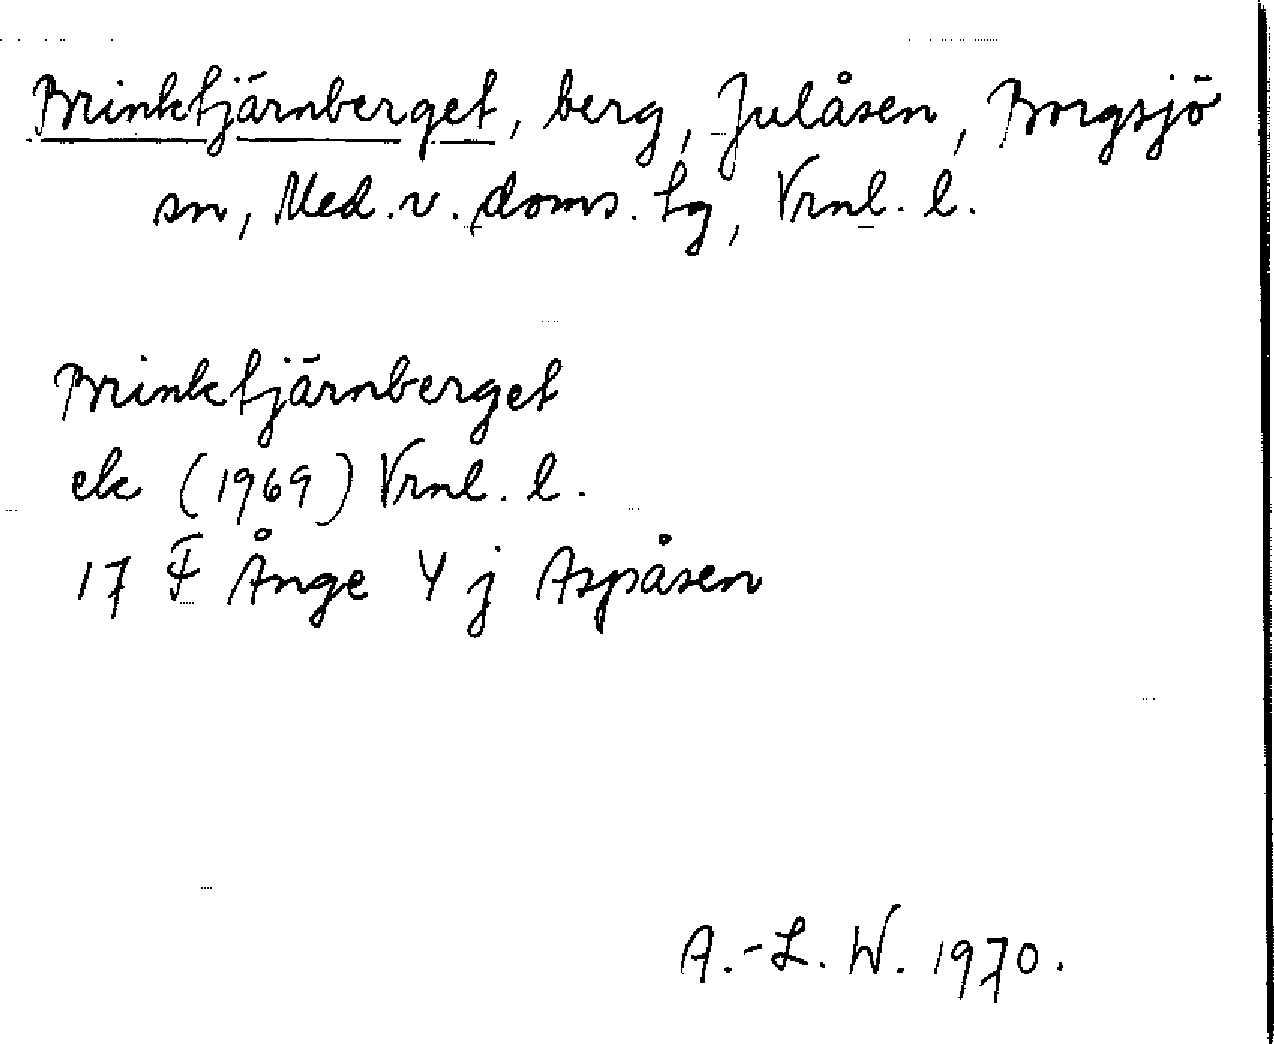 Brinktjärnberget, berg, Julåsen, Borgsjö
sn, Med. v. doms. tg, Vrnl. l.
Brinktjärnberget
ek (1969) Vrnl. l.
17 F Ånge 4 j Aspåsen
A.-L. W. 1970.